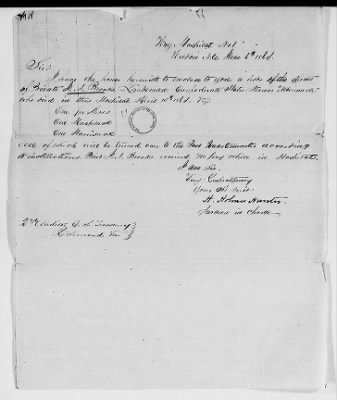 Way Hospital No 1
Weldon N.C. June 6th 1864.
Sir
I have the honor herewith to enclose to you a list of the effects
of Private R. A. Brooks, Confederate States
who died in this Hospital April 10th 1864. Viz
One pr Shoes
One Knapsack
One Haversack
all of which will be turned over to the Post Quartermaster according
to instructions. Privt R. A. Brooks received no pay while in Hospital.
I am Sir
Very Respectfully
Your Obt Servt
H. Holmes Hunter
Surgeon in Charge
2nd Auditor C. S. Treasury
Richmond Va